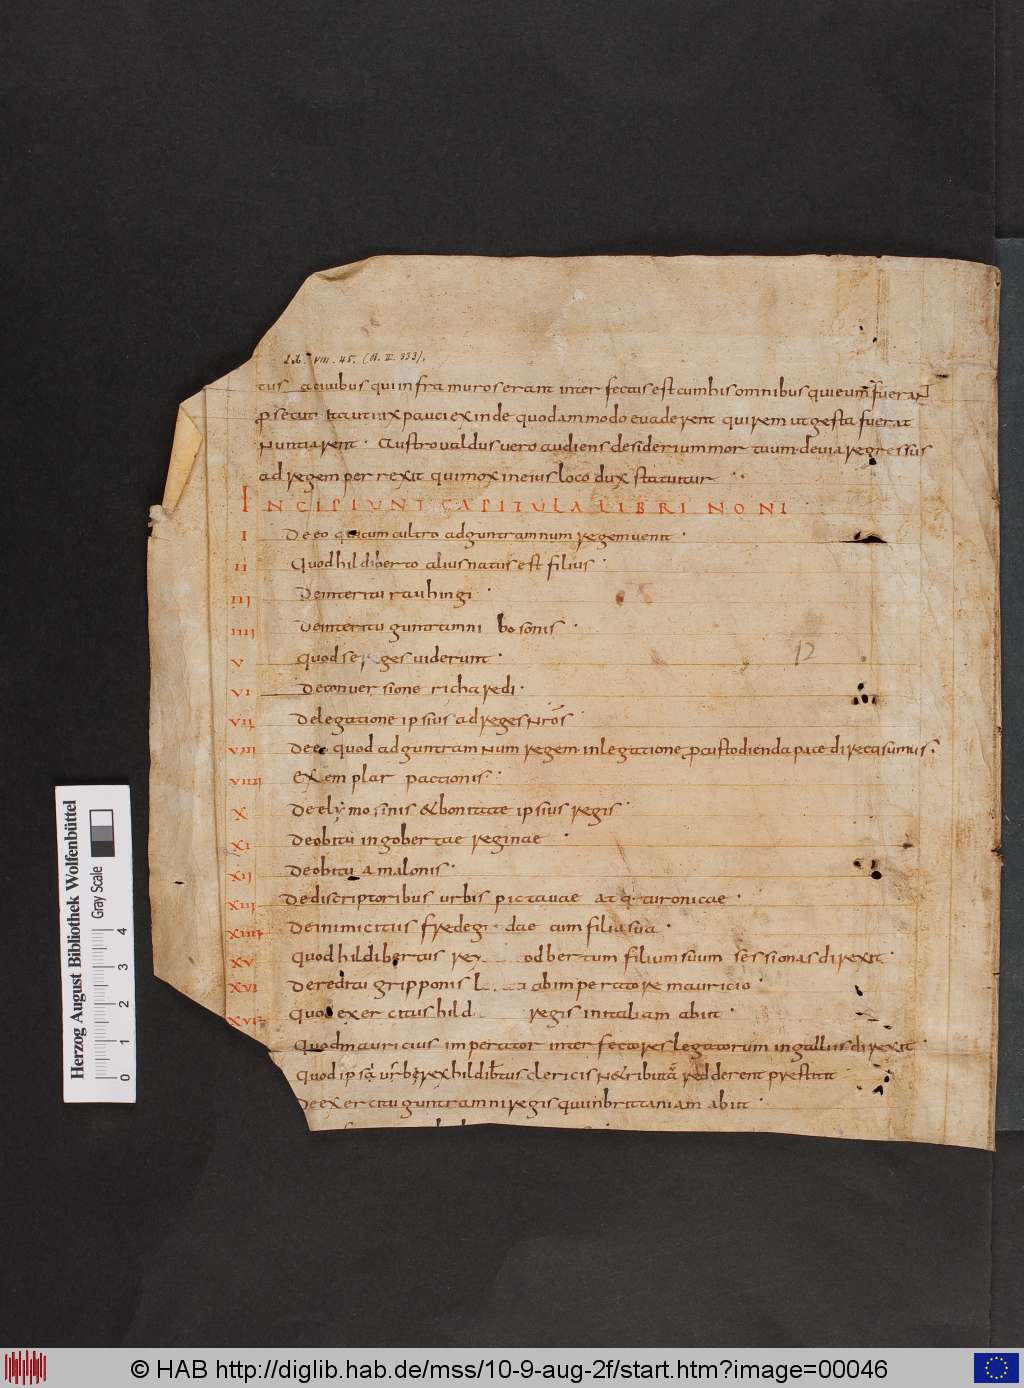 Lib. VIII. 45. (B. II. 333).
tus a ciuibus qui infra muros erant interfectus est cum his omnibus qui eum fuerant
prosecuti Ita ut uix pauci exinde quodammodo euaderent qui rem ut gesta fuerat
nuntiarent · Austroualdus uero audiens desiderium mortuum · de uia regressus
ad regem perrexit qui mox in eius loco dux statuitur
INCIPIUNT CAPITULA LIBRI NONI
I De eo quicum cultro ad guntramnum regem uenit ·
II Quod hildiberto alius natus est filius ·
III De interitu rauhingi ·
IIII De interitu guntramni bosonis ·
V Quod se reges uiderunt ·
12
VI De conuersione richaredi ·
VII De legatione ipsius ad reges nr̄os ·
VIII De eo quod ad guntramnum regem in legatione pro custodienda pace direcsumus ·
VIIII Exemplar pactionis ·
X De elymosinis & bonitate ipsius regis ·
XI De obitu ingobertae reginae ·
XII De obitu amalonis ·
XIII De discriptoribus urbis pictauae atq· turonicae ·
XIIII De inimicitiis fredegi·dae cum filia sua ·
XV Quod hildibertus re odbertum filium suum sessionas direxit ·
XVI De reditu gripponis l ab imperatore mauricio ·
XVII Quod exercitus hild regis in italiam abiit ·
Quod mauricius imperator interfectores legatorum in gallis direxit ·
Quod ipsa urbe rex hildib̄tus clericis ne tributa redderent prestitit
De exercitu guntramni regis qui in brittaniam abiit ·
Herzog August Bibliothek Wolfenbüttel
Gray Scale
0 1 2 3 4
© HAB http://diglib.hab.de/mss/10-9-aug-2f/start.htm?image=00046